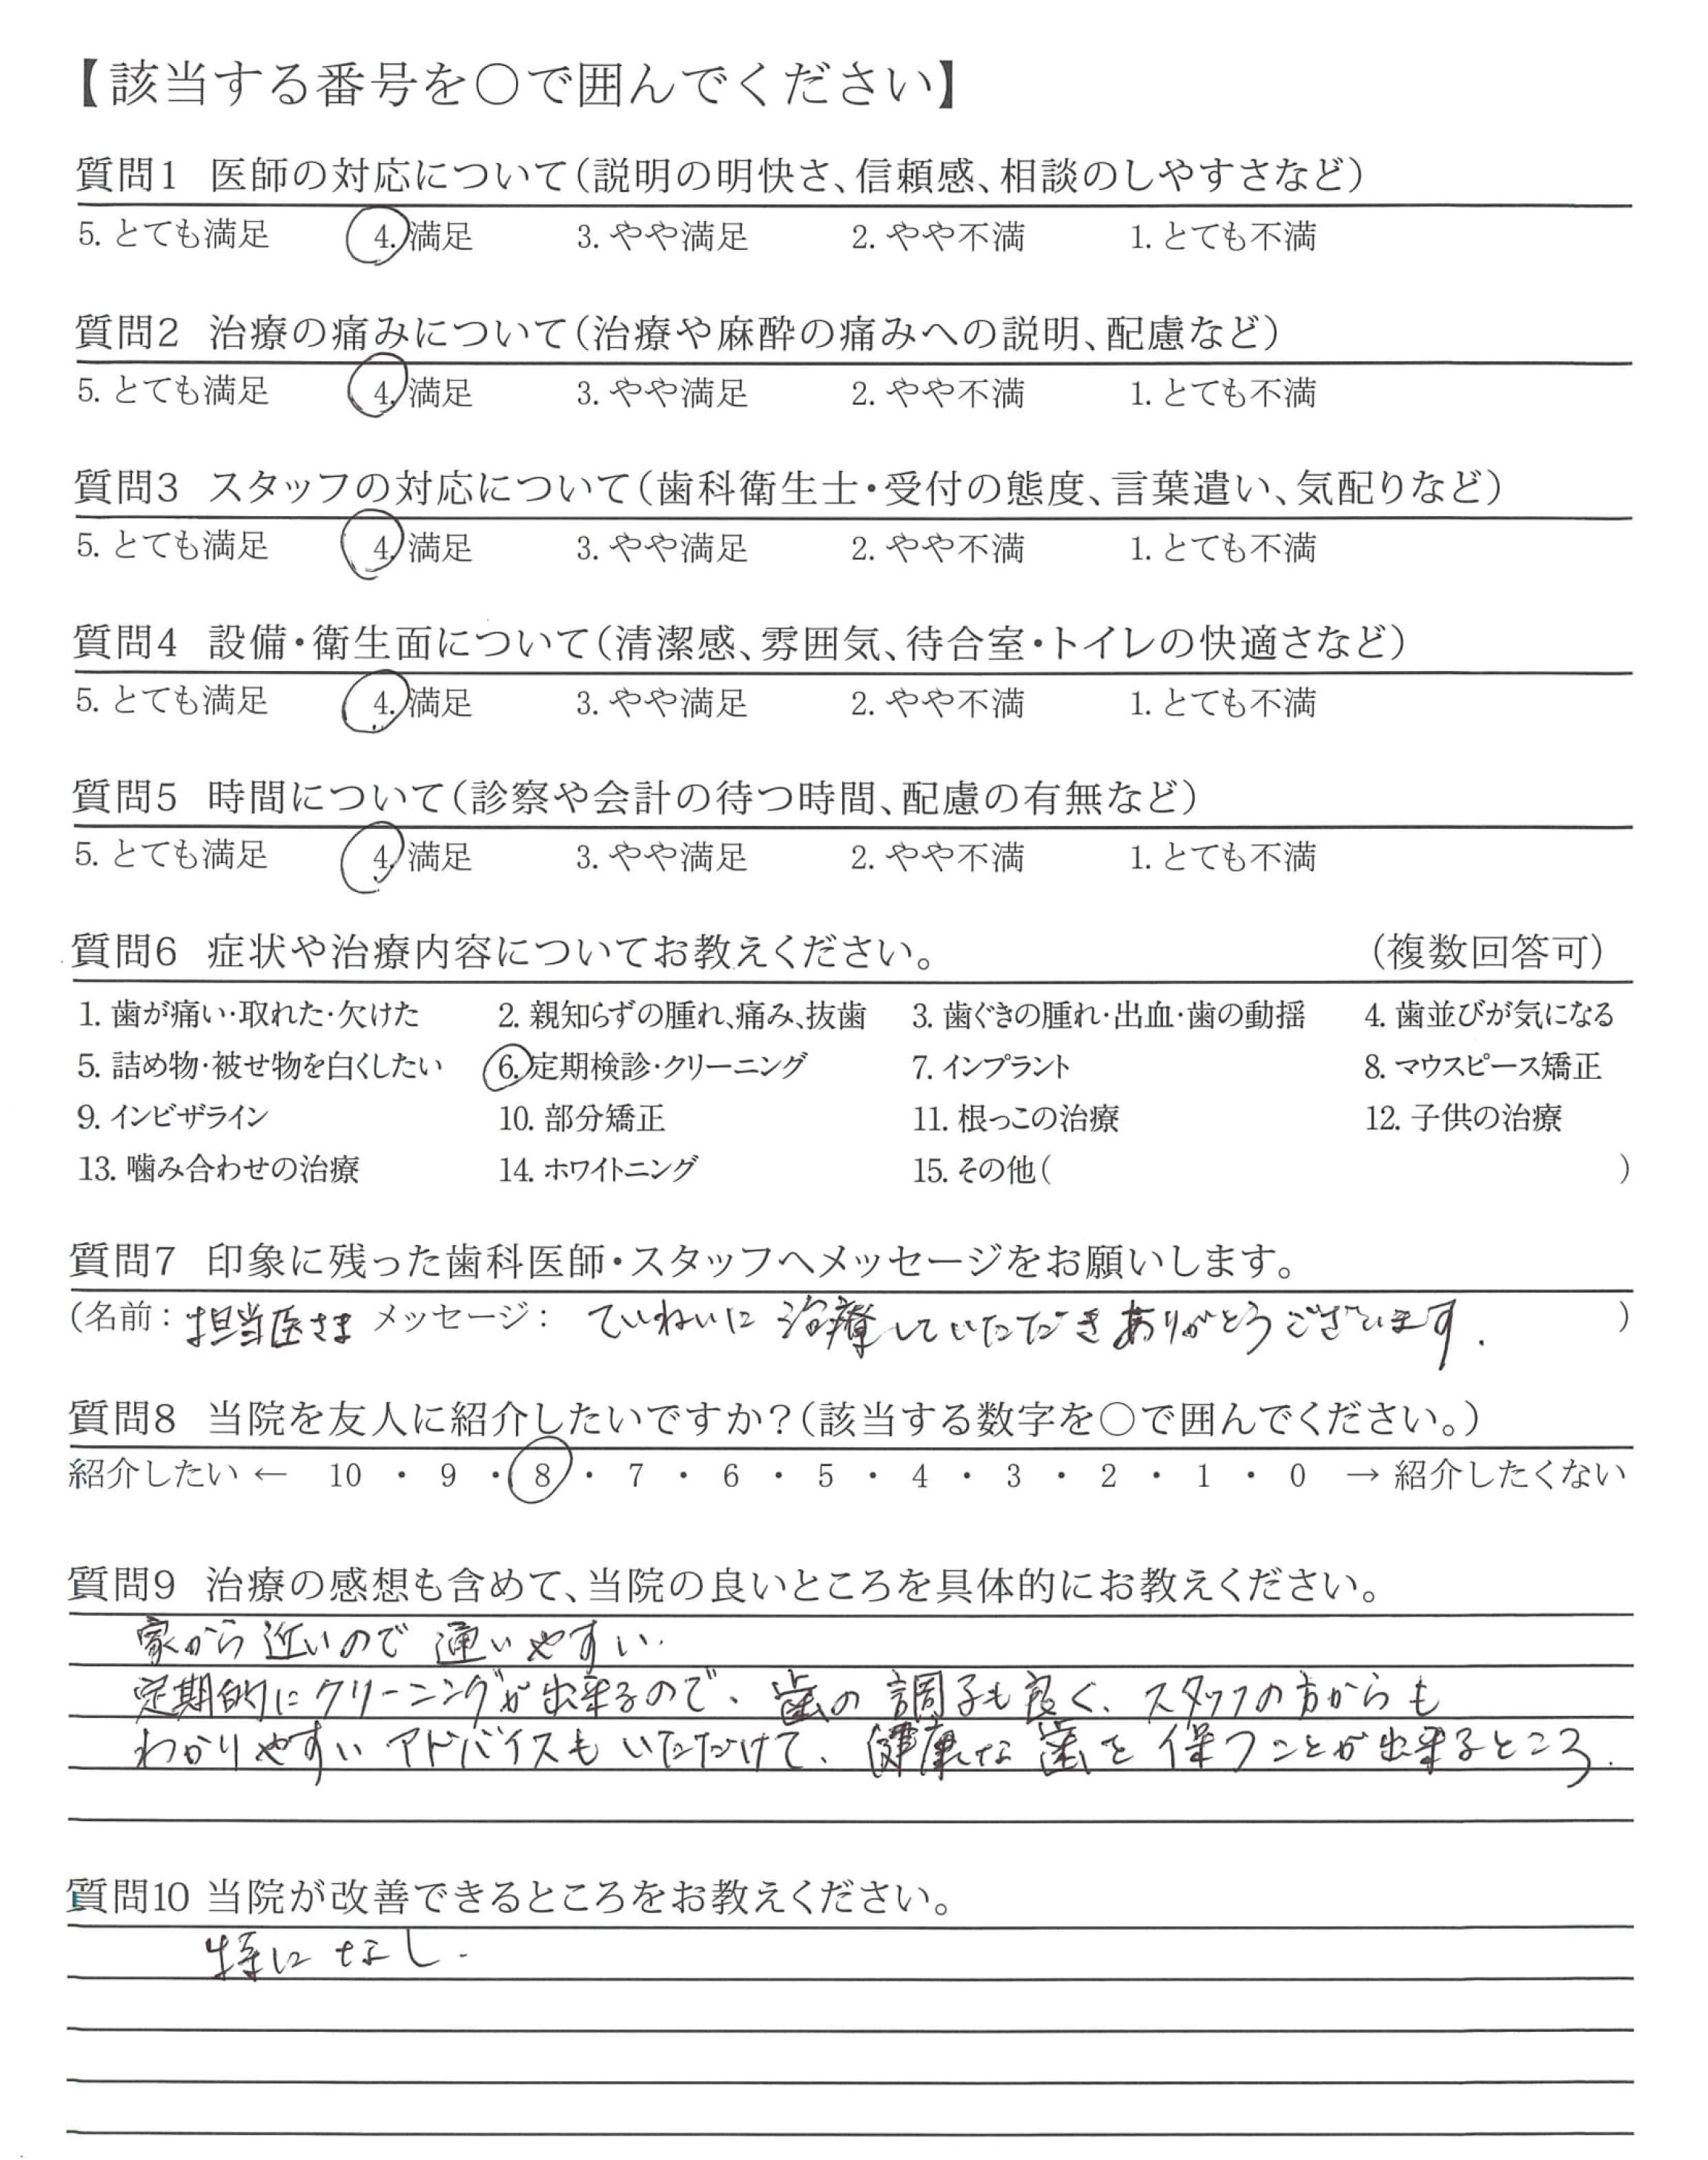 【該当する番号を○で囲んでください】
質問1 医師の対応について(説明の明快さ、信頼感、相談のしやすさなど)
5. とても満足 4. 満足 3. やや満足 2. やや不満 1. とても不満
質問2 治療の痛みについて(治療や麻酔の痛みへの説明、配慮など)
5. とても満足 4. 満足 3. やや満足 2. やや不満 1. とても不満
質問3 スタッフの対応について(歯科衛生士・受付の態度、言葉遣い、気配りなど)
5. とても満足 4. 満足 3. やや満足 2. やや不満 1. とても不満
質問4 設備・衛生面について(清潔感、雰囲気、待合室・トイレの快適さなど)
5. とても満足 4. 満足 3. やや満足 2. やや不満 1. とても不満
質問5 時間について(診察や会計の待つ時間、配慮の有無など)
5. とても満足 4. 満足 3. やや満足 2. やや不満 1. とても不満
質問6 症状や治療内容についてお教えください。 (複数回答可)
1. 歯が痛い・取れた・欠けた 2. 親知らずの腫れ、痛み、抜歯 3. 歯ぐきの腫れ・出血・歯の動揺 4. 歯並びが気になる
5. 詰め物・被せ物を白くしたい 6. 定期検診・クリーニング 7. インプラント 8. マウスピース矯正
9. インビザライン 10. 部分矯正 11. 根っこの治療 12. 子供の治療
13. 噛み合わせの治療 14. ホワイトニング 15. その他( )
質問7 印象に残った歯科医師・スタッフへメッセージをお願いします。
(名前: 担当医さま メッセージ: ていねいに治療していただきありがとうございます. )
質問8 当院を友人に紹介したいですか?(該当する数字を○で囲んでください。)
紹介したい ← 10 ・ 9 ・ 8 ・ 7 ・ 6 ・ 5 ・ 4 ・ 3 ・ 2 ・ 1 ・ 0 → 紹介したくない
質問9 治療の感想も含めて、当院の良いところを具体的にお教えください。
家から近いので通いやすい.
定期的にクリーニングが出来るので、歯の調子も良く、スタッフの方からも
わかりやすいアドバイスもいただけて、健康な歯を保つことが出来るところ.
質問10 当院が改善できるところをお教えください。
特になし.